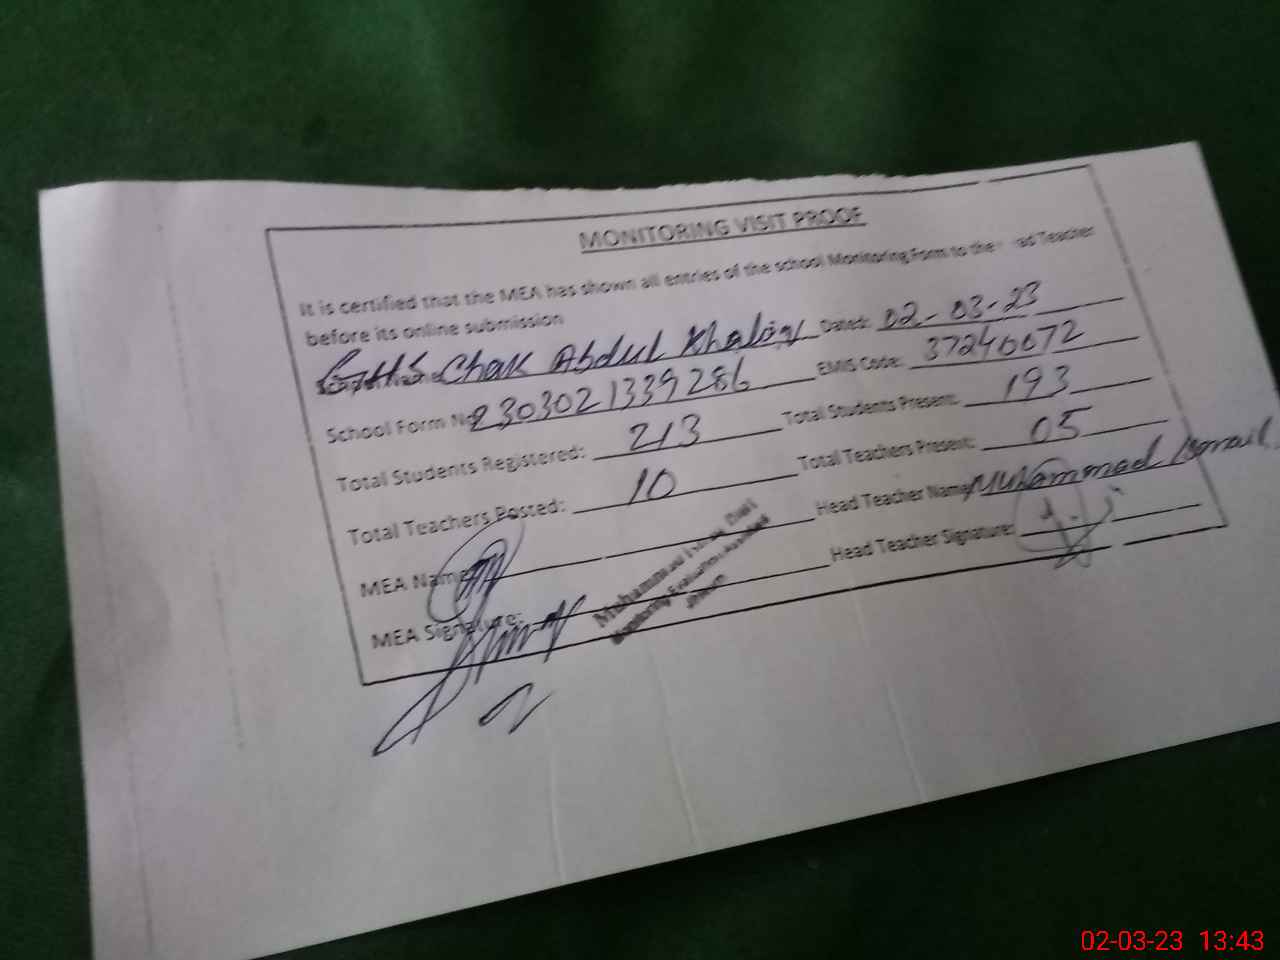 MONITORING VISIT PROOF
It is certified that the MEA has shown all entries of the school Monitoring Form to the Teacher
before its online submission
Chak Abdul Dated: 02-03-23
School Form No 2303021339286 EMIS Code: 37240072
Total Students Registered: 213 Total Students Present: 193
Total Teachers Posted: 10 Total Teachers Present: 05
MEA Name Head Teacher Name Muhammad Ismail
MEA Signature: Head Teacher Signature:
Muhammad
Monitoring Evaluation
02-03-23 13:43